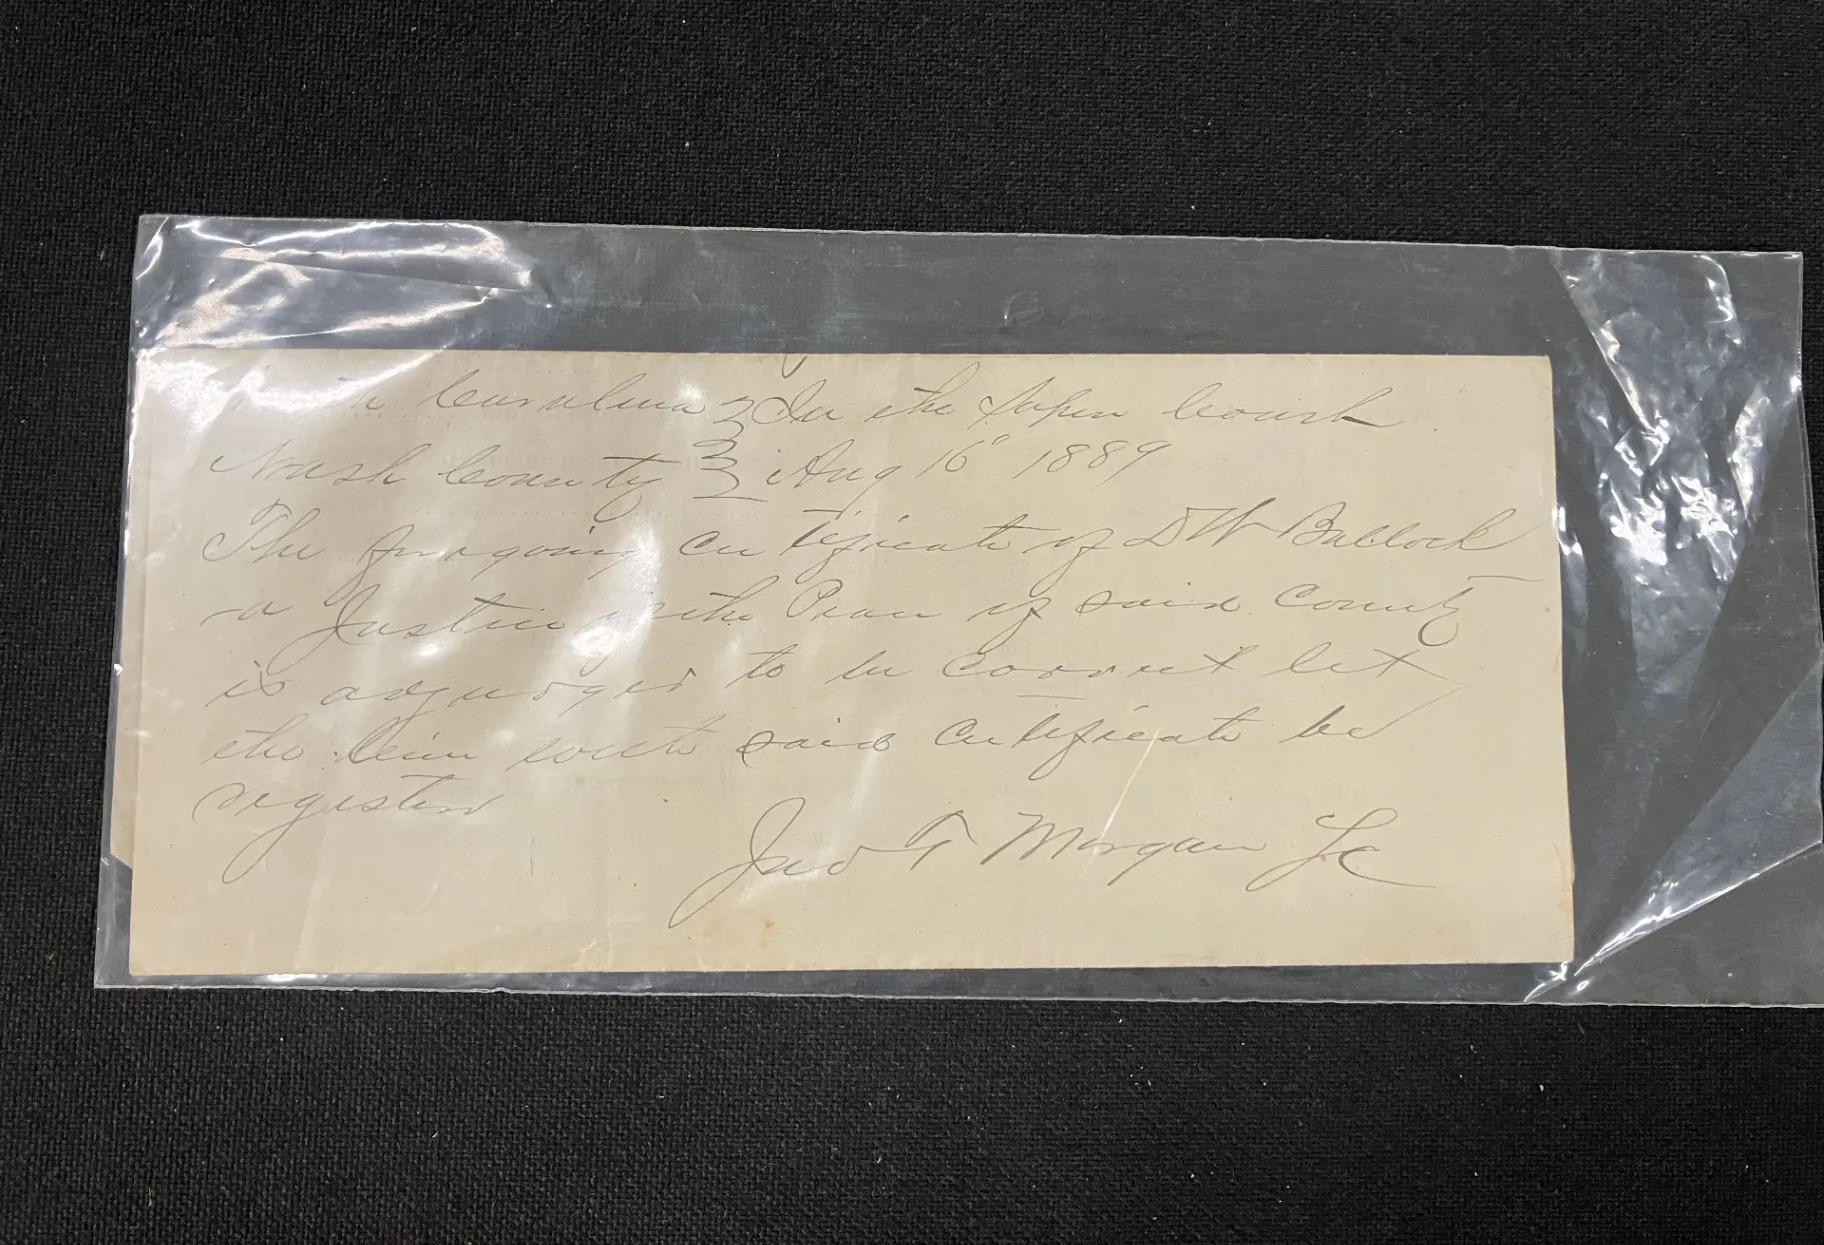 North Carolina } In the Super Court
Nash County } Aug 16° 1889
The foregoing Certificate of D W Bullock
a Justice of the Peace of said County
is adjudged to be correct let
the lein with said Certificate be
registerd
Jno T Morgan